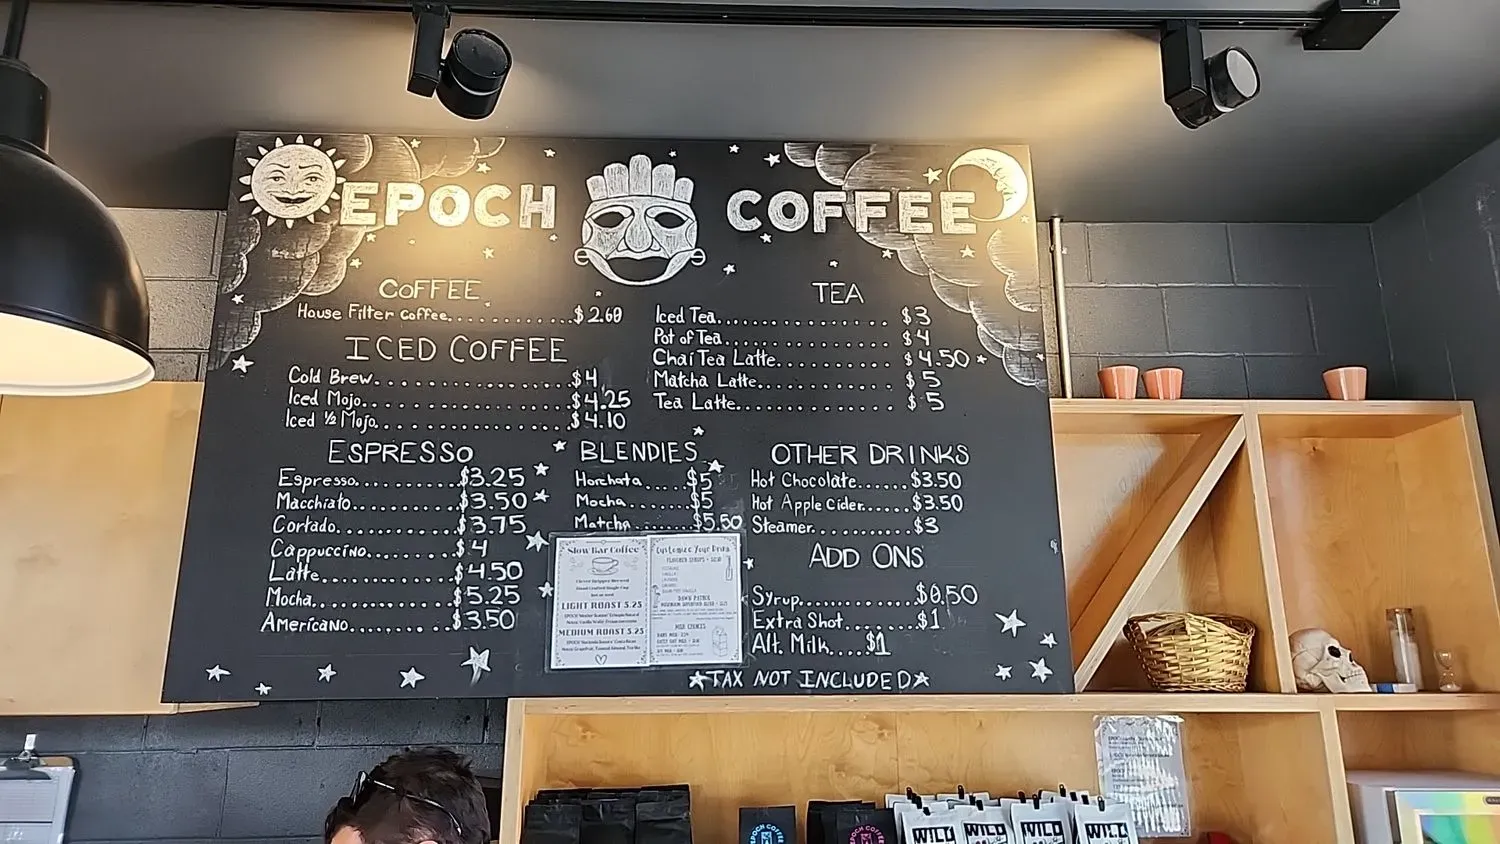 EPOCH COFFEE
COFFEE
House Filter Coffee.............$2.60
ICED COFFEE
Cold Brew....................$4
Iced Mojo....................$4.25
Iced ½ Mojo..................$4.10
ESPRESSO
Espresso...........$3.25
Macchiato..........$3.50
Cortado............$3.75
Cappuccino.........$4
Latte..............$4.50
Mocha..............$5.25
Americano..........$3.50
TEA
Iced Tea..................$3
Pot of Tea................$4
Chai Tea Latte............$4.50
Matcha Latte..............$5
Tea Latte.................$5
BLENDIES
Horchata.....$5
Mocha........$5
Matcha.......$5.50
Slow Bar Coffee
LIGHT ROAST 5.25
MEDIUM ROAST 5.25
Customize Your Drink
OTHER DRINKS
Hot Chocolate......$3.50
Hot Apple Cider......$3.50
Steamer............$3
ADD ONS
Syrup...........$0.50
Extra Shot........$1
Alt. Milk....$1
TAX NOT INCLUDED
EPOCH COFFEE
EPOCH COFFEE
WILD
WILD
WILD
WILD